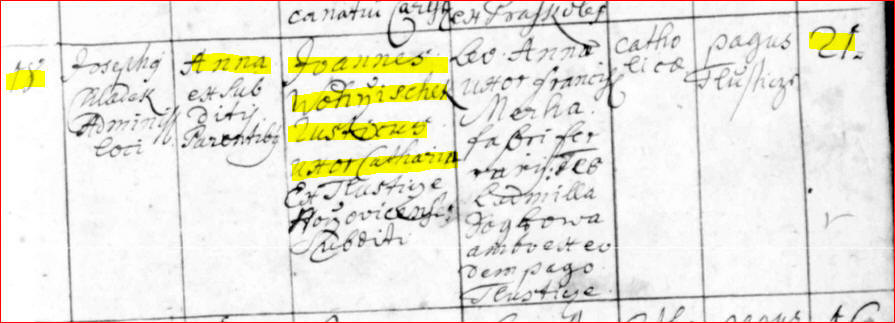 canatu Caryx ex Praskoles
18
Josephg
Mladek
Adminis
loci
Anna
ex Sub
ditis
Parentibg
Joannes
Wotirischek
Rusticus
uxor Catharina
Ex Tlustize
Horzovicensis
Subditi
Lev. Anna
uxor Francis
Merha
fabri fer
rarij: Tes
Ladmilla
ambo ex eo
dem pago
Tlustize
catho
licæ
pagus
Tlusticze
21